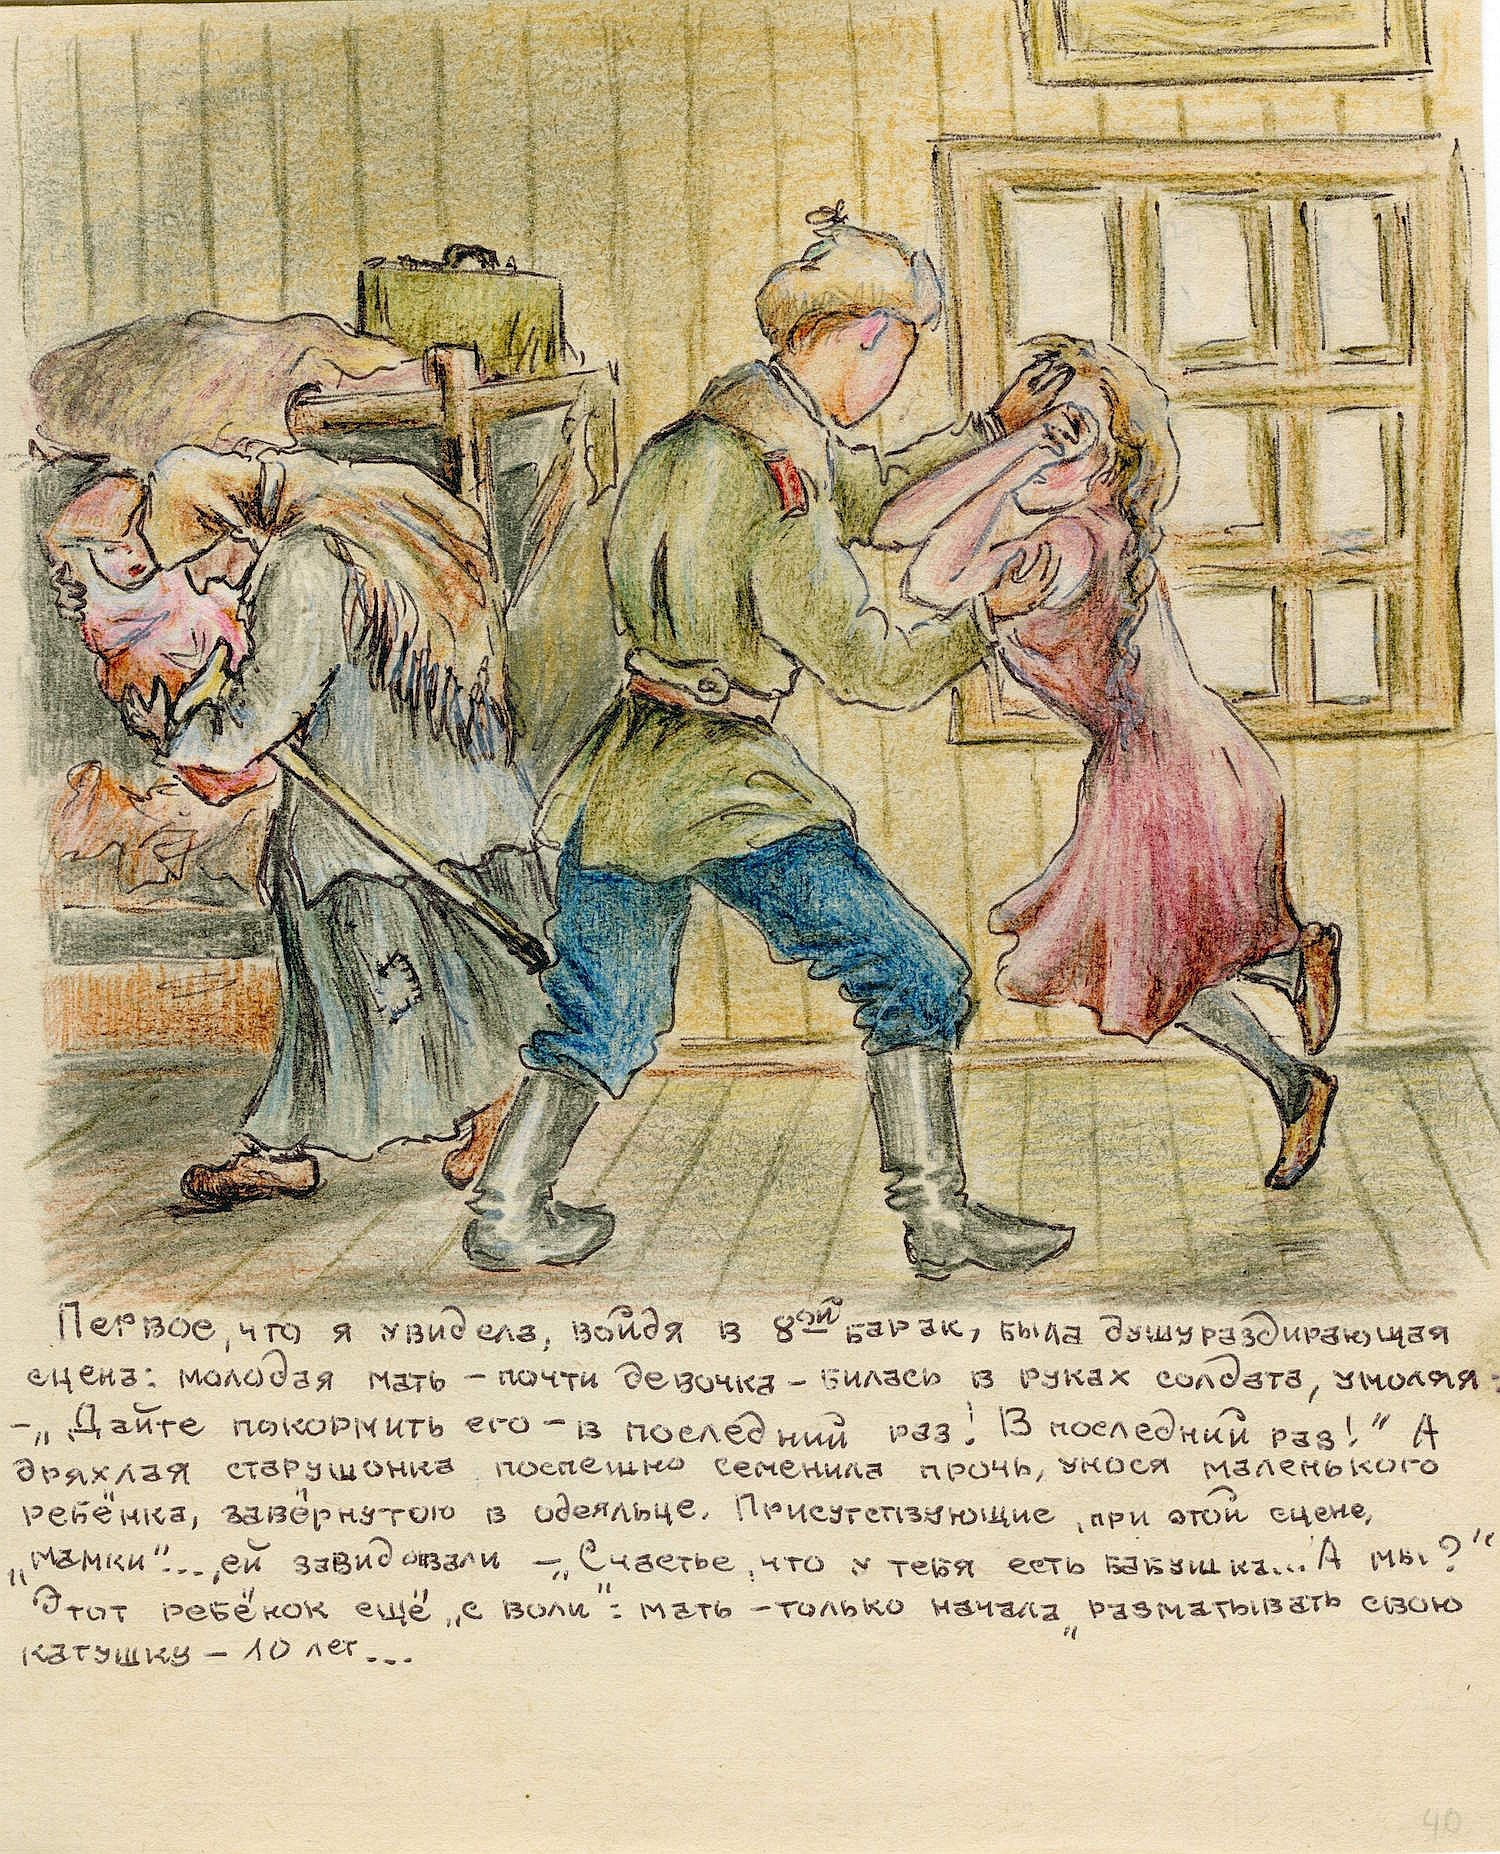 Первое, что я увидела, войдя в 8ой барак, была душураздирающая
сцена: молодая мать – почти девочка – билась в руках солдата, умоляя:
– „Дайте покормить его – в последний раз! В последний раз!" А
дряхлая старушонка поспешно семенила прочь, унося маленького
ребёнка, завёрнутого в одеяльце. Присутствующие, при этой сцене,
„мамки"..., ей завидовали – „Счастье, что у тебя есть бабушка... А мы?"
Этот ребёнок ещё „с воли": мать – только начала „разматывать свою
катушку – 10 лет...
40